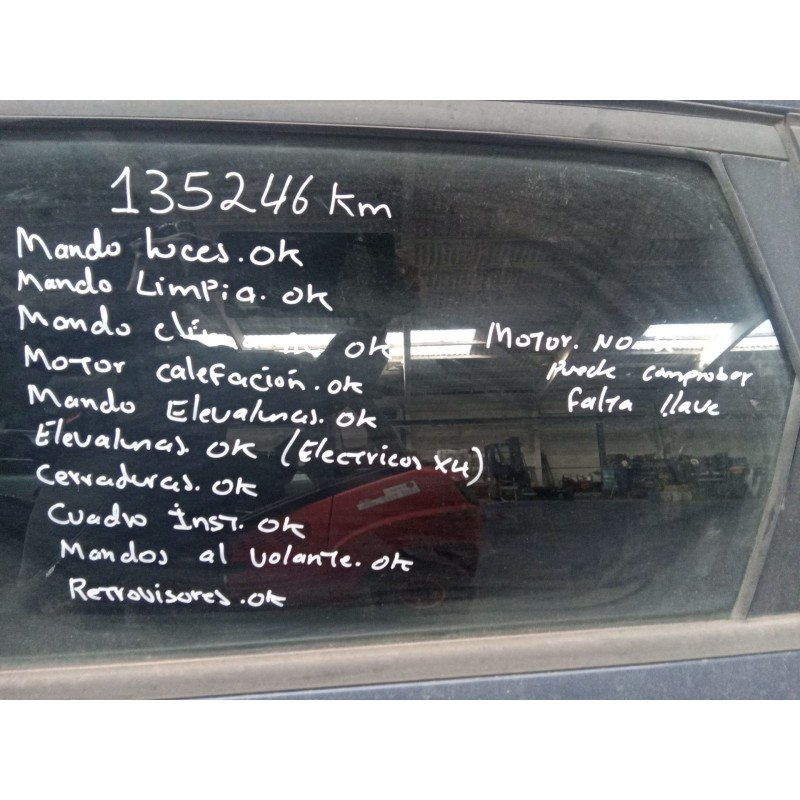 135246 Km
Mando luces. ok
Mando Limpia. ok
Mando ok
Motor calefación. ok
Mando Elevalunas. ok
Elevalunas. ok (Electricos x4)
Cerraduras. ok
Cuadro Inst. ok
Mandos al volante. ok
Retrovisores. ok
Motor. NO
puede comprobar
falta llave